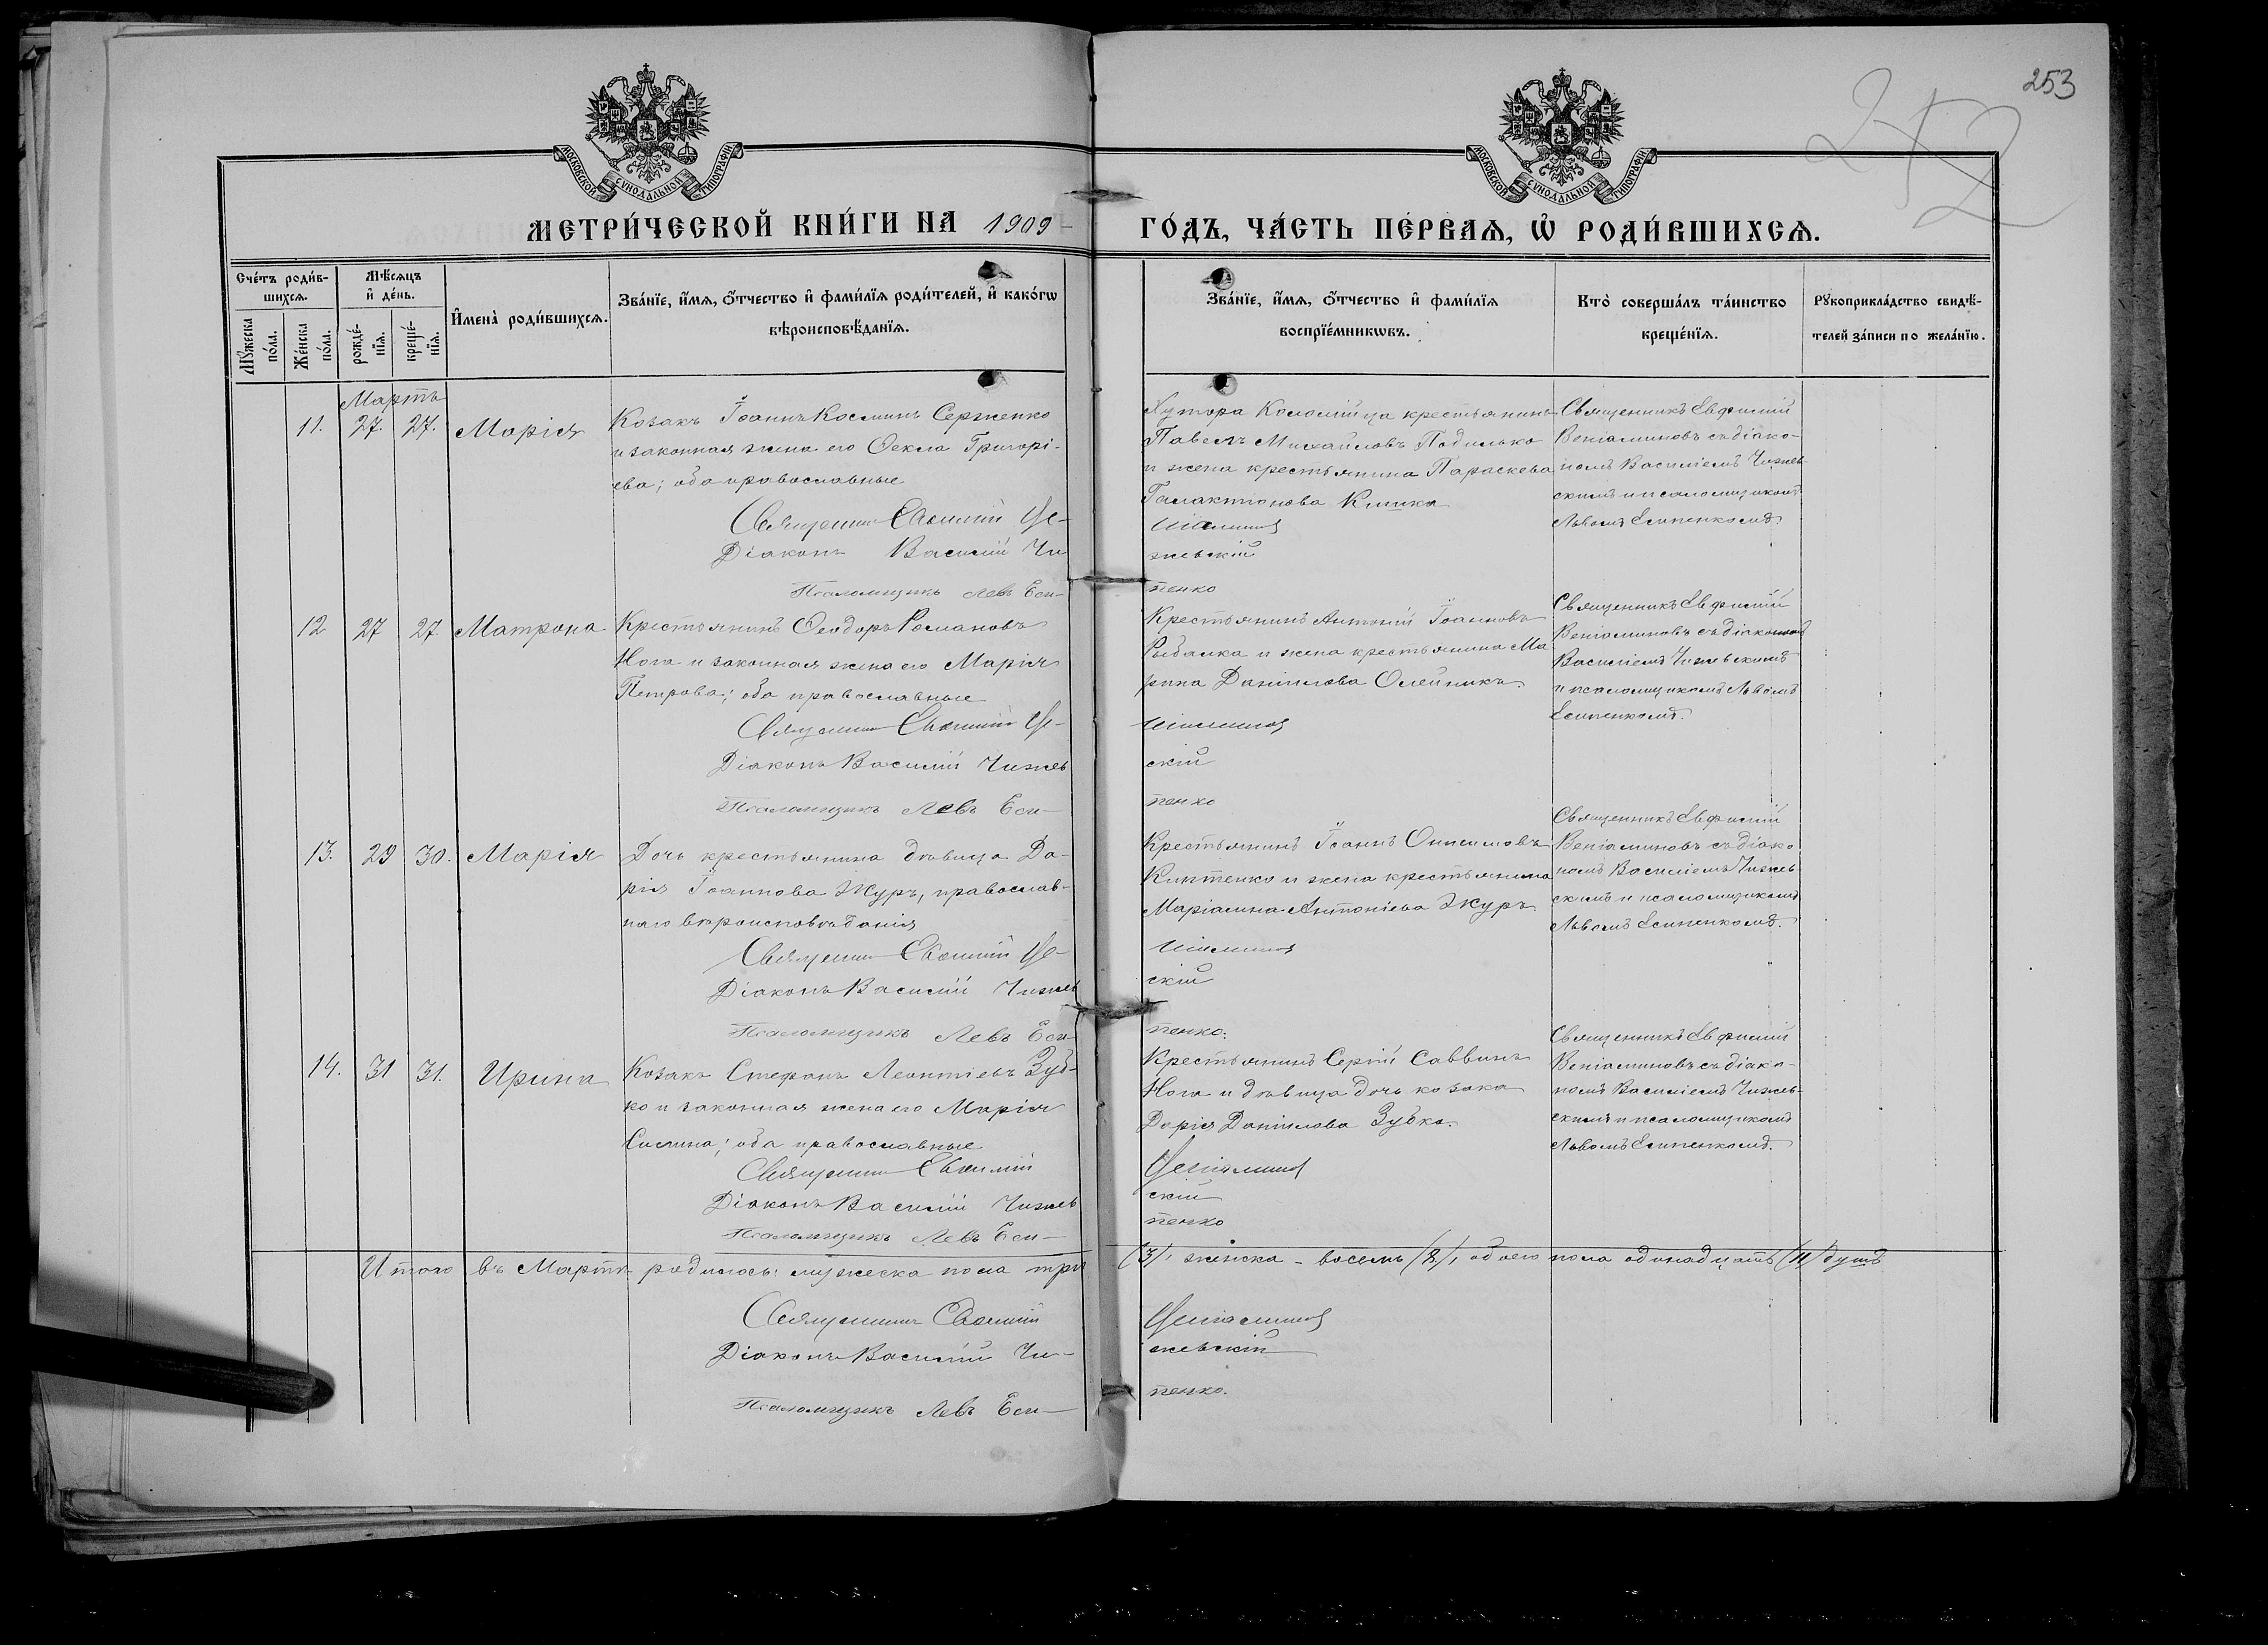 253
252
МОСКОВСКОЙ СѴНОДАЛЬНОЙ ТИПОГРАФІИ
МОСКОВСКОЙ СѴНОДАЛЬНОЙ ТИПОГРАФІИ
МЕТРИ́ЧЕСКОЙ КНИ́ГИ НА 1909
ГО́ДЪ, ЧА́СТЬ ПЕ́РВАѦ, Ѽ РОДИ́ВШИХСѦ.
Сче́тъ роди́вшихсѧ.
Мꙋ́жеска по́ла.
Же́нска по́ла.
Мѣ́сѧцъ и҆ де́нь.
рожде́нїѧ.
креще́нїѧ.
И҆мена̀ роди́вшихсѧ.
Зва́нїе, и҆́мѧ, ѻ҆́тчество и҆ фами́лїѧ роди́телей, и҆ како́гѡ
вѣроисповѣ́данїѧ.
Зва́нїе, и҆́мѧ, ѻ҆́тчество и҆ фами́лїѧ
воспрїе́мникѡвъ.
Кто̀ соверша́лъ та́инство
креще́нїѧ.
Рꙋкоприкла́дство свидѣ́-
телей за́писи по жела́нїю.
Мартъ
11. 27. 27. Марія
Козакъ Іоаннъ Косминъ Серженко
и законная жена его Ѳекла Григорі-
ева; оба православные
Священник Евѳимій Ве-
Діаконъ Василій Чи
Псаломщикъ Левъ Еси-
Хутора Коломійца крестьянинъ
Павелъ Михайловъ Подилько
и жена крестьянина Параскева
Галактіонова Кишка
ніаминов
жевскій
пенко
Священникъ Евфимій
Веніаминовъ съ діако-
номъ Василіемъ Чижев-
скимъ и псаломщикомъ
Львомъ Есипенкомъ.
12 27 27 Матрона
Крестьянинъ Ѳеодоръ Романовъ
Нога и законная жена его Марія
Петрова; оба православные
Священник Евѳимій Ве-
Діаконъ Василій Чижев
Псаломщикъ Левъ Еси-
Крестьянинъ Антоній Іоанновъ
Рыбалка и жена крестьянина Ма
рина Даніилова Олейникъ.
ніаминов
скій
пенко
Священникъ Евфимій
Веніаминовъ съ діакономъ
Василіемъ Чижевскимъ
и псаломщикомъ Львомъ
Есипенкомъ.
13. 29 30. Марія
Дочь крестьянина дѣвица Да-
рія Іоаннова Журъ, православ-
наго вѣроисповѣданія
Священник Евѳимій Ве-
Діаконъ Василій Чижев
Псаломщикъ Левъ Еси-
Крестьянинъ Іоаннъ Онисимовъ
и жена крестьянина
Маріамна Антоніева Журъ.
ніаминов
скій
пенко.
Священникъ Евфимій
Веніаминовъ съ діако
номъ Василіемъ Чижев
скимъ и псаломщикомъ
Львомъ Есипенкомъ.
14. 31 31. Ирина
Козакъ Стефанъ Леонтіевъ Зуб-
ко и законная жена его Марія
оба православные
Священник Евѳимій
Діаконъ Василій Чижев
Псаломщикъ Левъ Еси-
Крестьянинъ Сергій Саввинъ
Нога и дѣвица дочь козака
Дарія Даніилова Зубко.
Веніаминов
скій
пенко
Священникъ Евфимій
Веніаминовъ съ діако-
номъ Василіемъ Чижев-
скимъ и псаломщикомъ
Львомъ Есипенкомъ.
Итого въ Мартѣ родилось: мужеска пола три (3), женска - восемь (8), обоего пола одинадцать (11) душъ
Священник Евѳимій
Діаконъ Василій Чи-
Псаломщикъ Левъ Еси-
Веніаминов
жевскій
пенко.